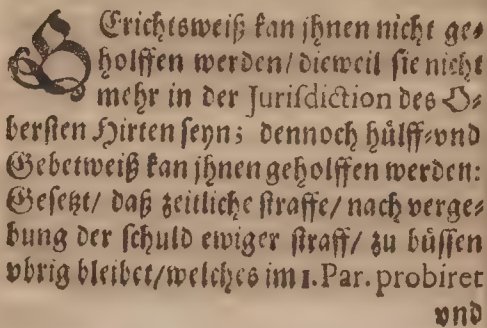 GErichtsweiß kan jhnen nicht ge⸗
holffen werden/ dieweil sie nicht
mehr in der Jurisdiction des O⸗
bersten Hirten seyn; dennoch hülff⸗vnd
Gebetweiß kan jhnen geholffen werden:
Gesetzt/ daß zeitliche straffe/ nach verge⸗
bung der schuld ewiger straff/ zu büssen
vbrig bleibet/welches im 1. Par. probiret
vnd